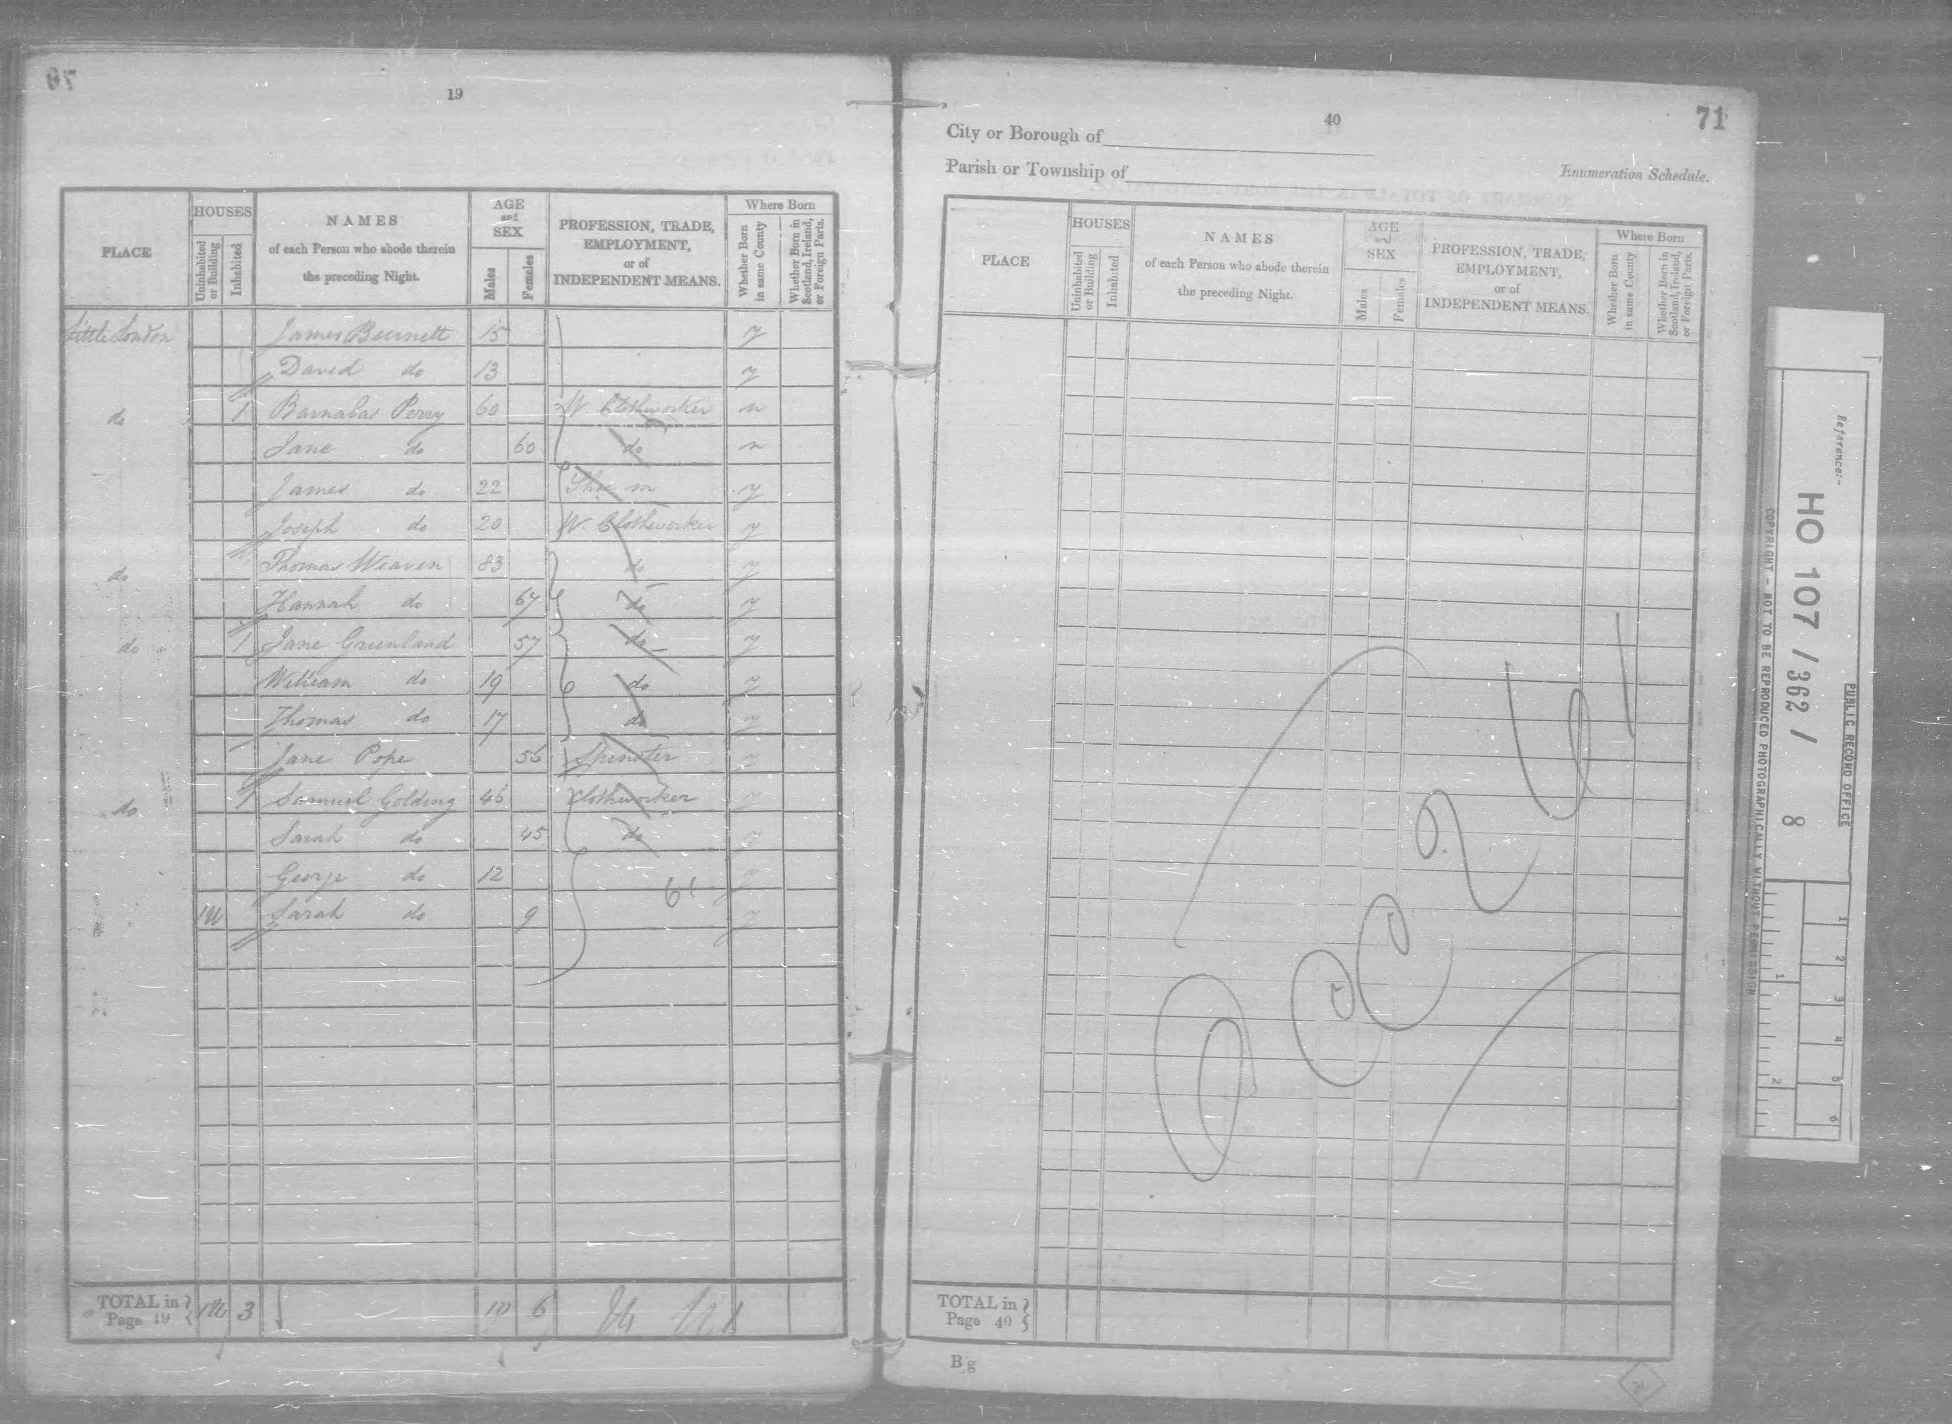 19
PLACE
HOUSES
Uninhabited or Building
Inhabited
NAMES
of each Person who abode therein
the preceding Night.
AGE
and
SEX
Males
Females
PROFESSION, TRADE,
EMPLOYMENT,
or of
INDEPENDENT MEANS.
Where Born
Whether Born in same County
Whether Born in Scotland, Ireland, or Foreign Parts.
Little London James Burnett 15 y
David do 13 y
do 1 Barnabas Perry 60 W. Clothworker n
Jane do 60 do n
James do 22 Shoe m y
Joseph do 20 W. Clothworker y
do Thomas Weaven 83 do y
Hannah do 67 do y
do 1 Jane Greenland 57 do y
William do 19 do y
Thomas do 17 do y
Jane Pope 56 Spinster y
do 1 Samuel Golding 46 Clothworker y
Sarah do 45 do y
George do 12 y
61
1U Sarah do 9 y
TOTAL in
Page 19
1U 3 10 6
40
71
City or Borough of
Parish or Township of
Enumeration Schedule.
PLACE
HOUSES
Uninhabited or Building
Inhabited
NAMES
of each Person who abode therein
the preceding Night.
AGE
and
SEX
Males
Females
PROFESSION, TRADE,
EMPLOYMENT,
or of
INDEPENDENT MEANS.
Where Born
Whether Born in same County
Whether Born in Scotland, Ireland, or Foreign Parts.
TOTAL in
Page 40
Bg
Reference:-
HO 107 / 362 / 8
PUBLIC RECORD OFFICE
COPYRIGHT - NOT TO BE REPRODUCED PHOTOGRAPHICALLY WITHOUT PERMISSION
1
2
1
2
3
4
5
6